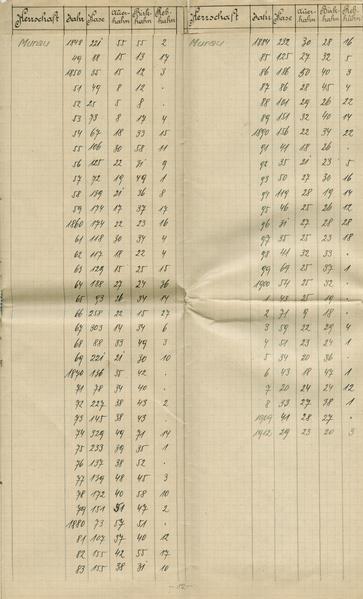 Herrschaft Jahr Hase Auer-hahn Birk-hahn Reb-huhn
Murau 1848 221 55 55 2
49 88 15 13 17
1850 35 15 12 3
51 49 8 12 .
52 25 5 8 .
53 73 8 17 4
54 67 18 33 15
55 106 30 58 11
56 125 22 31 9
57 72 19 49 1
58 139 21 36 8
59 174 17 37 17
1860 174 22 23 16
61 118 30 34 4
62 117 18 22 4
63 129 15 25 15
64 188 27 24 36
65 93 26 34 14
66 258 22 15 27
67 303 14 34 6
68 88 33 49 3
69 221 21 30 10
1870 136 35 42 .
71 78 34 40 .
72 227 38 43 2
73 145 38 43 .
74 329 49 71 14
75 233 39 35 1
76 137 38 52 .
77 139 48 45 3
78 172 40 58 10
79 151 51 47 2
1880 73 57 51 .
81 107 37 40 12
82 155 42 55 17
83 155 38 31 10
Herrschaft Jahr Hase Auer-hahn Birk-hahn Reb-huhn
Murau 1884 232 30 28 16
85 125 27 32 5
86 186 50 40 3
87 86 28 45 4
88 101 29 26 22
89 151 32 40 14
1890 156 22 34 22
91 41 18 26 .
92 35 21 23 5
93 50 27 30 16
94 119 28 19 14
95 46 25 26 12
96 31 27 28 28
97 35 25 23 18
98 41 32 33 .
99 69 25 37 1
1900 54 25 32 .
1 43 25 19 .
2 71 9 18 .
3 59 22 29 4
4 51 23 24 1
5 34 20 36 .
6 43 18 47 1
7 20 24 24 12
8 33 27 38 1
1909 41 28 27 .
1912 29 23 20 3